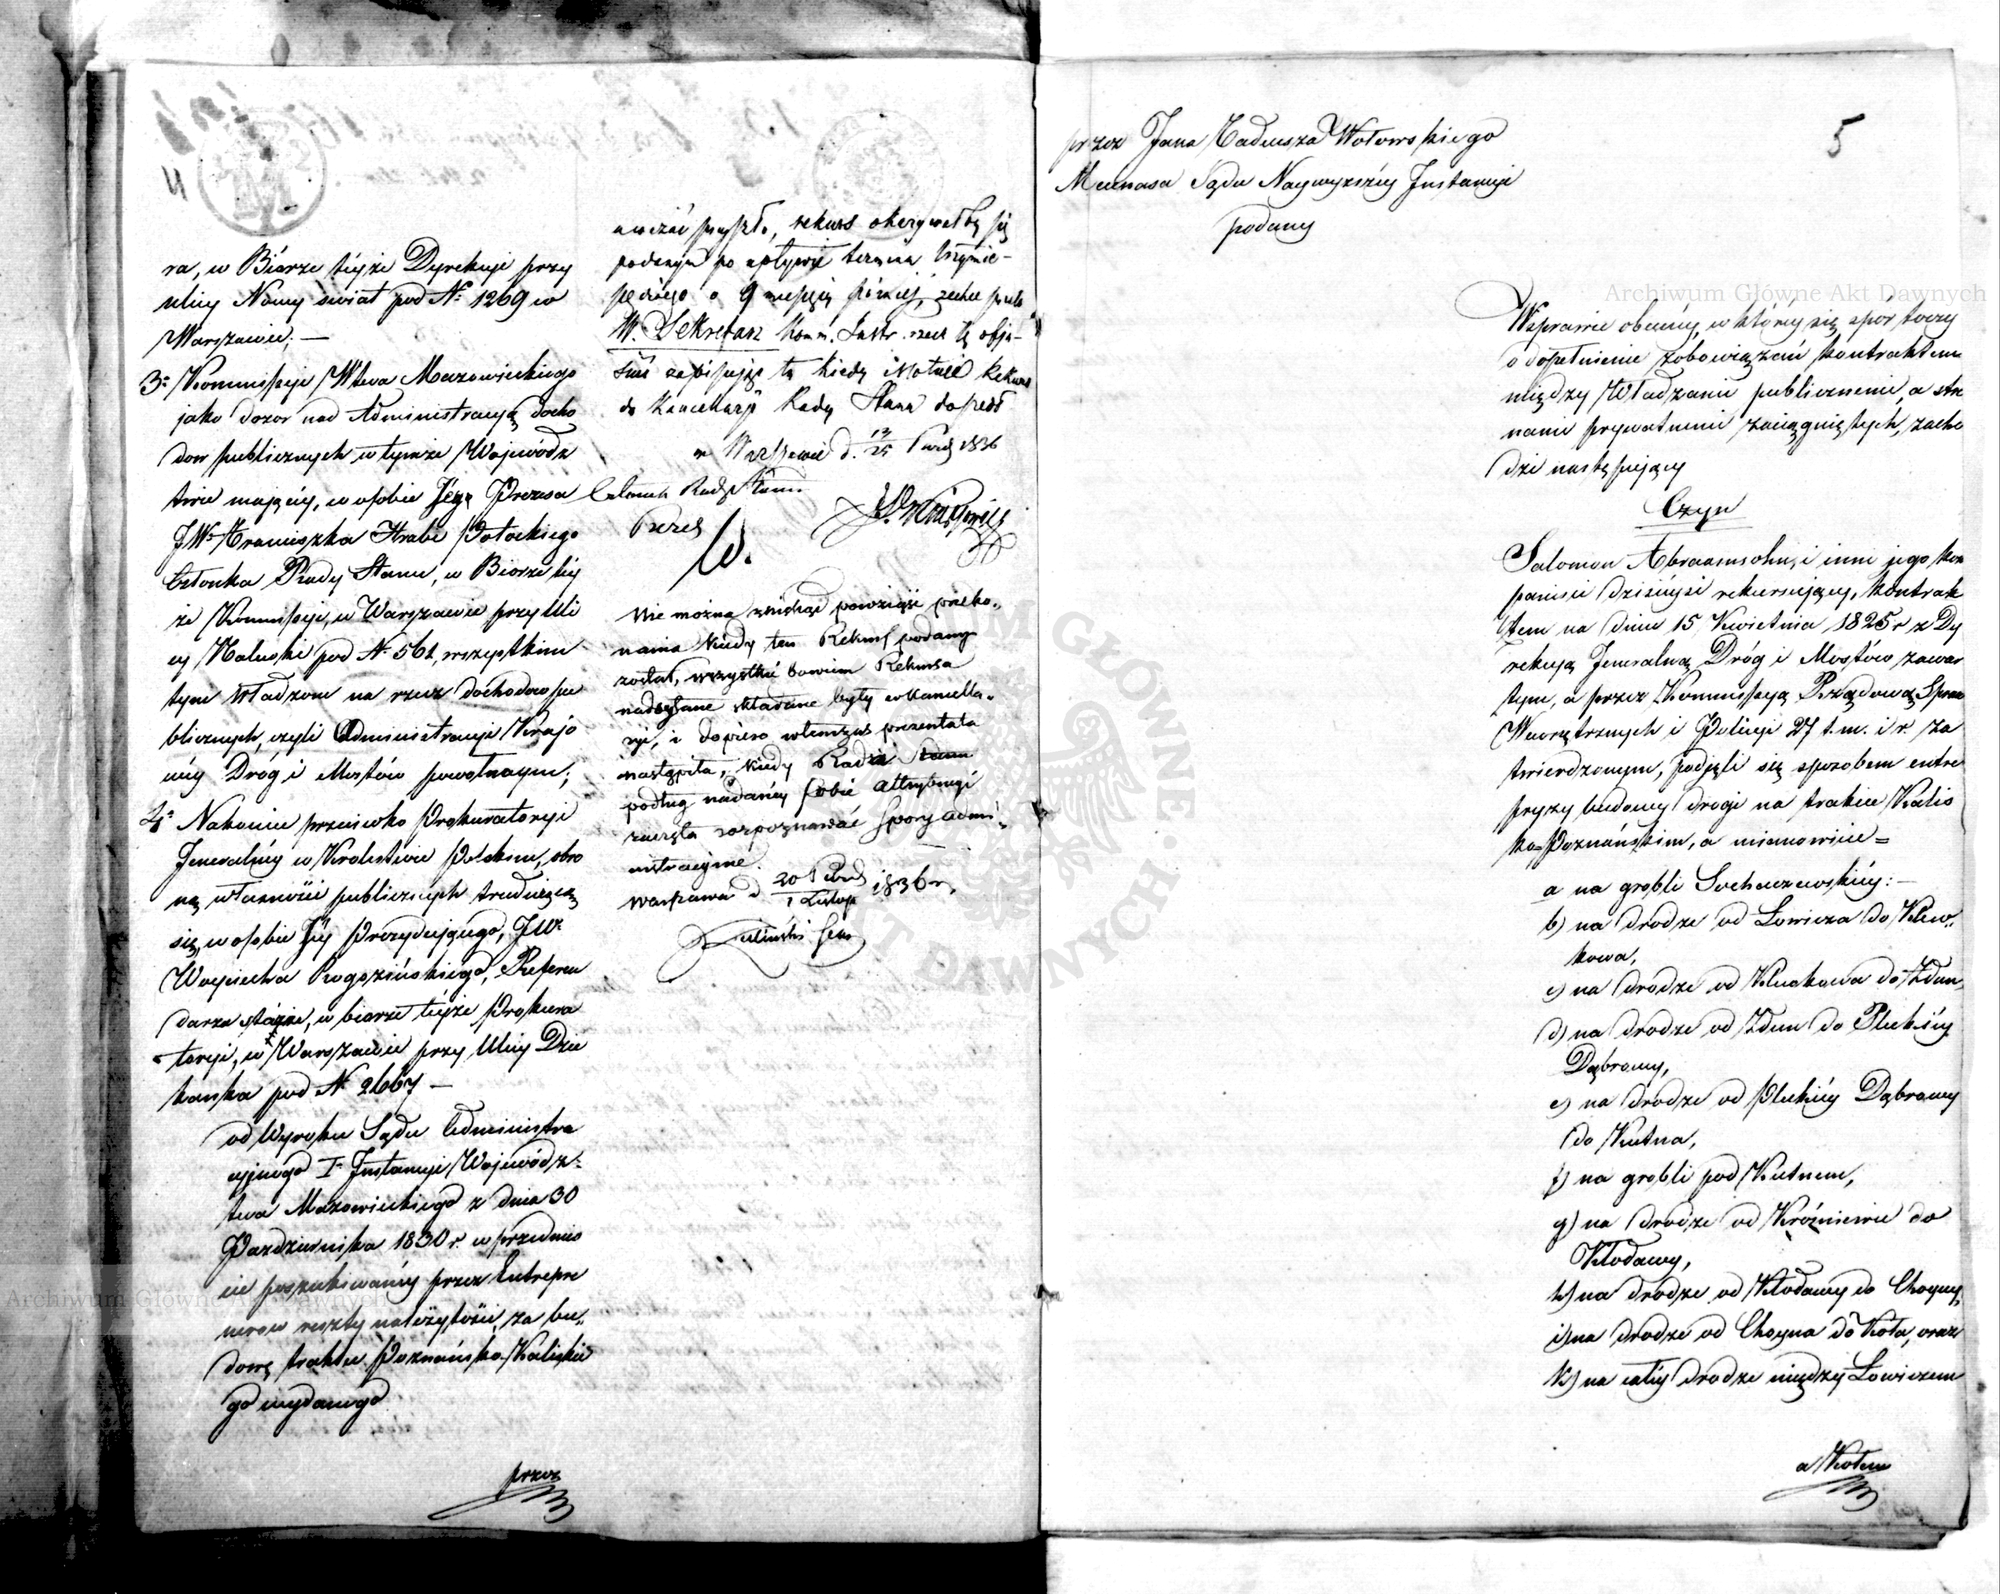 4
ra, w Biórze téjże Dyrekcji przy
ulicy Nowy świat pod Nº 1269 w
Warszawie; —
3º Kommissyi Wtwa Mazowieckiego
jako dozór nad Administracyą docho
dów publicznych w tymże Wojewódz
twie mającéy, w osobie Jéy Prezesa
JWº Franciszka Hrabi Potockiego
Członka Rady Stanu, w Biórze téy
że Kommissyi, w Warszawie przy uli
cy Rzÿmskiéy pod Nº 561, wszystkim
tym Władzom na rzecz dochodów pu
blicznych, czyli Administracyi Krajo
wéy Dróg i Mostów powołanym;
4º Nakoniec przeciwko Prokuratoryi
Jeneralnéy w Królestwie Polskiem, obro
ną własności publicznych trudniącą
się, w osobie Jéy Prezydującego, JWº
Woyciecha Rogozińskiego, Referen
darza stanu, w biórze téyże Prokura
toryi, w Warszawie przy Ulicy Dzie
kanka pod Nº 2667 —
od Wyroku Sądu Administra
cyjnego Iº Instancyi Wojewódz=
twa Mazowieckiego z dnia 30
Października 1830 r. w przedmio
cie poszukiwanéy przez Entrepre
nerów reszty należytości, za bu=
dowę traktu Poznańsko-Kaliskie
go wydanego
przez
podanym po upływie termina trzymie-
sięcznego o 9 miesięcy później, zechce
W. Sekretarz Kom. Instr. rzecz tę obja-
śnić zapisując tu kiedy istotnie Rekurs
do Kancellaryi Rady Stanu doszedł
w Warszawie d. 13/25 Paźd. 1836
Członek Rady Stanu
Prezes
Nie można zniskąd powziąść przeko-
nania kiedy ten Rekurs podany
został, wszystkie bowiem Rekursa
nadesłane składane były w Kancella-
ryi, i dopiero wtenczas prezentata
nastąpiła, kiedy Rada Stanu
podług nadanéy sobie attrybucyi
zaczęła rozpoznawać spory admi-
nistracyjne.
Warszawa d 20 Paźd/1 Listop 1836 r.
5
przez Jana Tadeusza Wołowskiego
Mecenasa Sądu Naywyższéy Instancyi
podany
W sprawie obecnéy, w któréy się spór toczy
o dopełnienie zobowiązań kontraktem
między Władzami publicznemi, a stro
nami prywatnemi zaciągniętych, zacho
dzi następujący
Czyn
Salomon Abraamsohn, i inni jego kom
paniści dzisiéysi rekursujący, kontrak
tem na dniu 15 Kwietnia 1825 r z Dy
rekcyą Jeneralną Dróg i Mostów zawar
tym, a przez Kommissyą Rządową Spraw
Wewnętrznych i Policyi 27 t. m. i r. za
twierdzonym, podjęli się sposobem entre
pryzy budowy drogi na trakcie Kalis
ko=Poznańskim, a mianowicie=
a na grobli Sochaczewskiéy: —
b) na drodze od Łowicza do Klew=
kowa,
c) na drodze od Klewkowa do Zdun,
d) na drodze od Zdun do Pleckiéy
Dąbrowy,
e) na drodze od Pleckiéy Dąbrowy
do Kutna,
f) na grobli pod Kutnem,
g) na drodze od Krośniewic do
Kłodawy,
h) na drodze od Kłodawy do Choyny,
i) na drodze od Choyna do Koła, oraz
k) na całéy drodze między Łowiczem
a Kołem
Archiwum Główne Akt Dawnych
Archiwum Główne Akt Dawnych